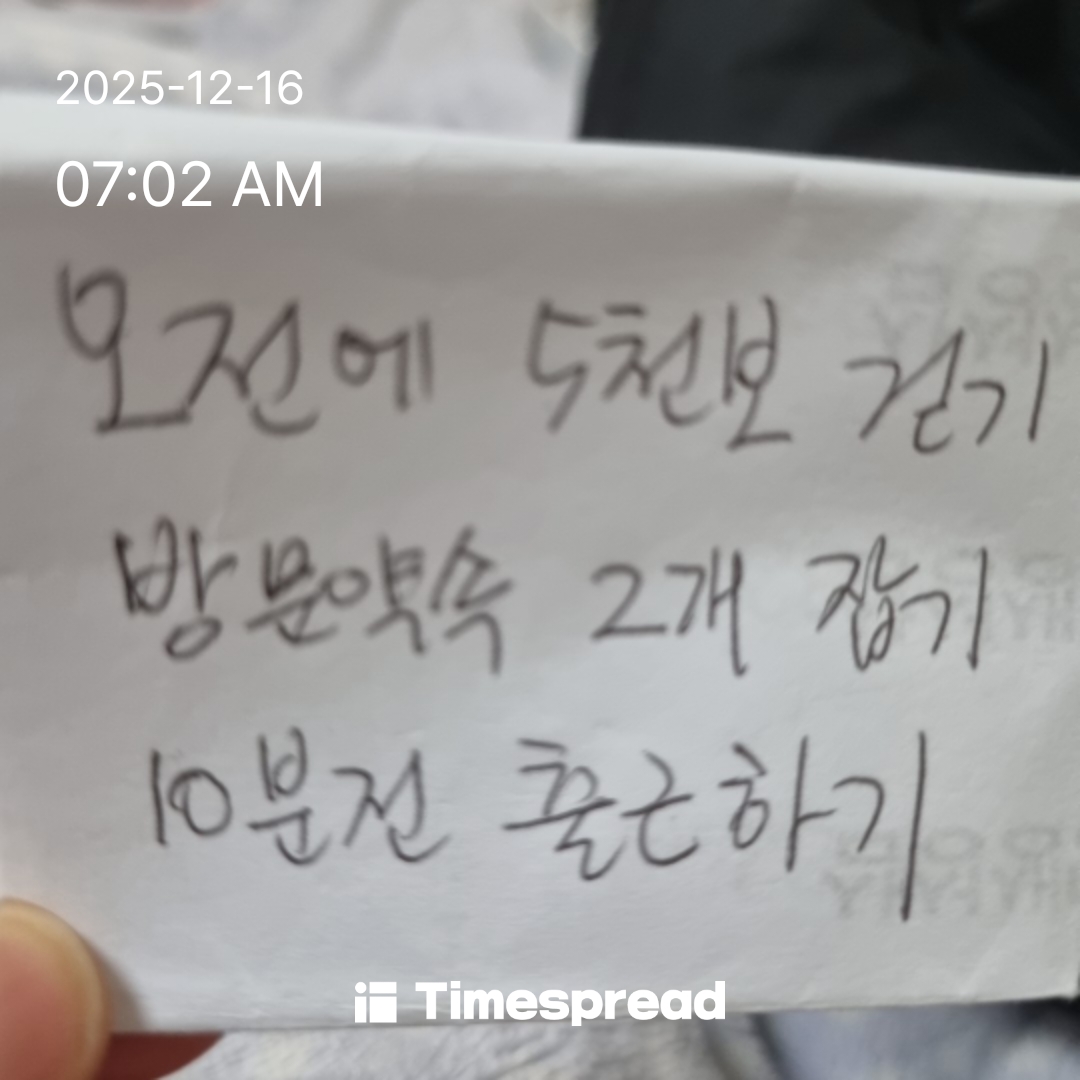 2025-12-16
07:02 AM
오전에 5천보 걷기
방문약속 2개 잡기
10분전 출근하기
Timespread